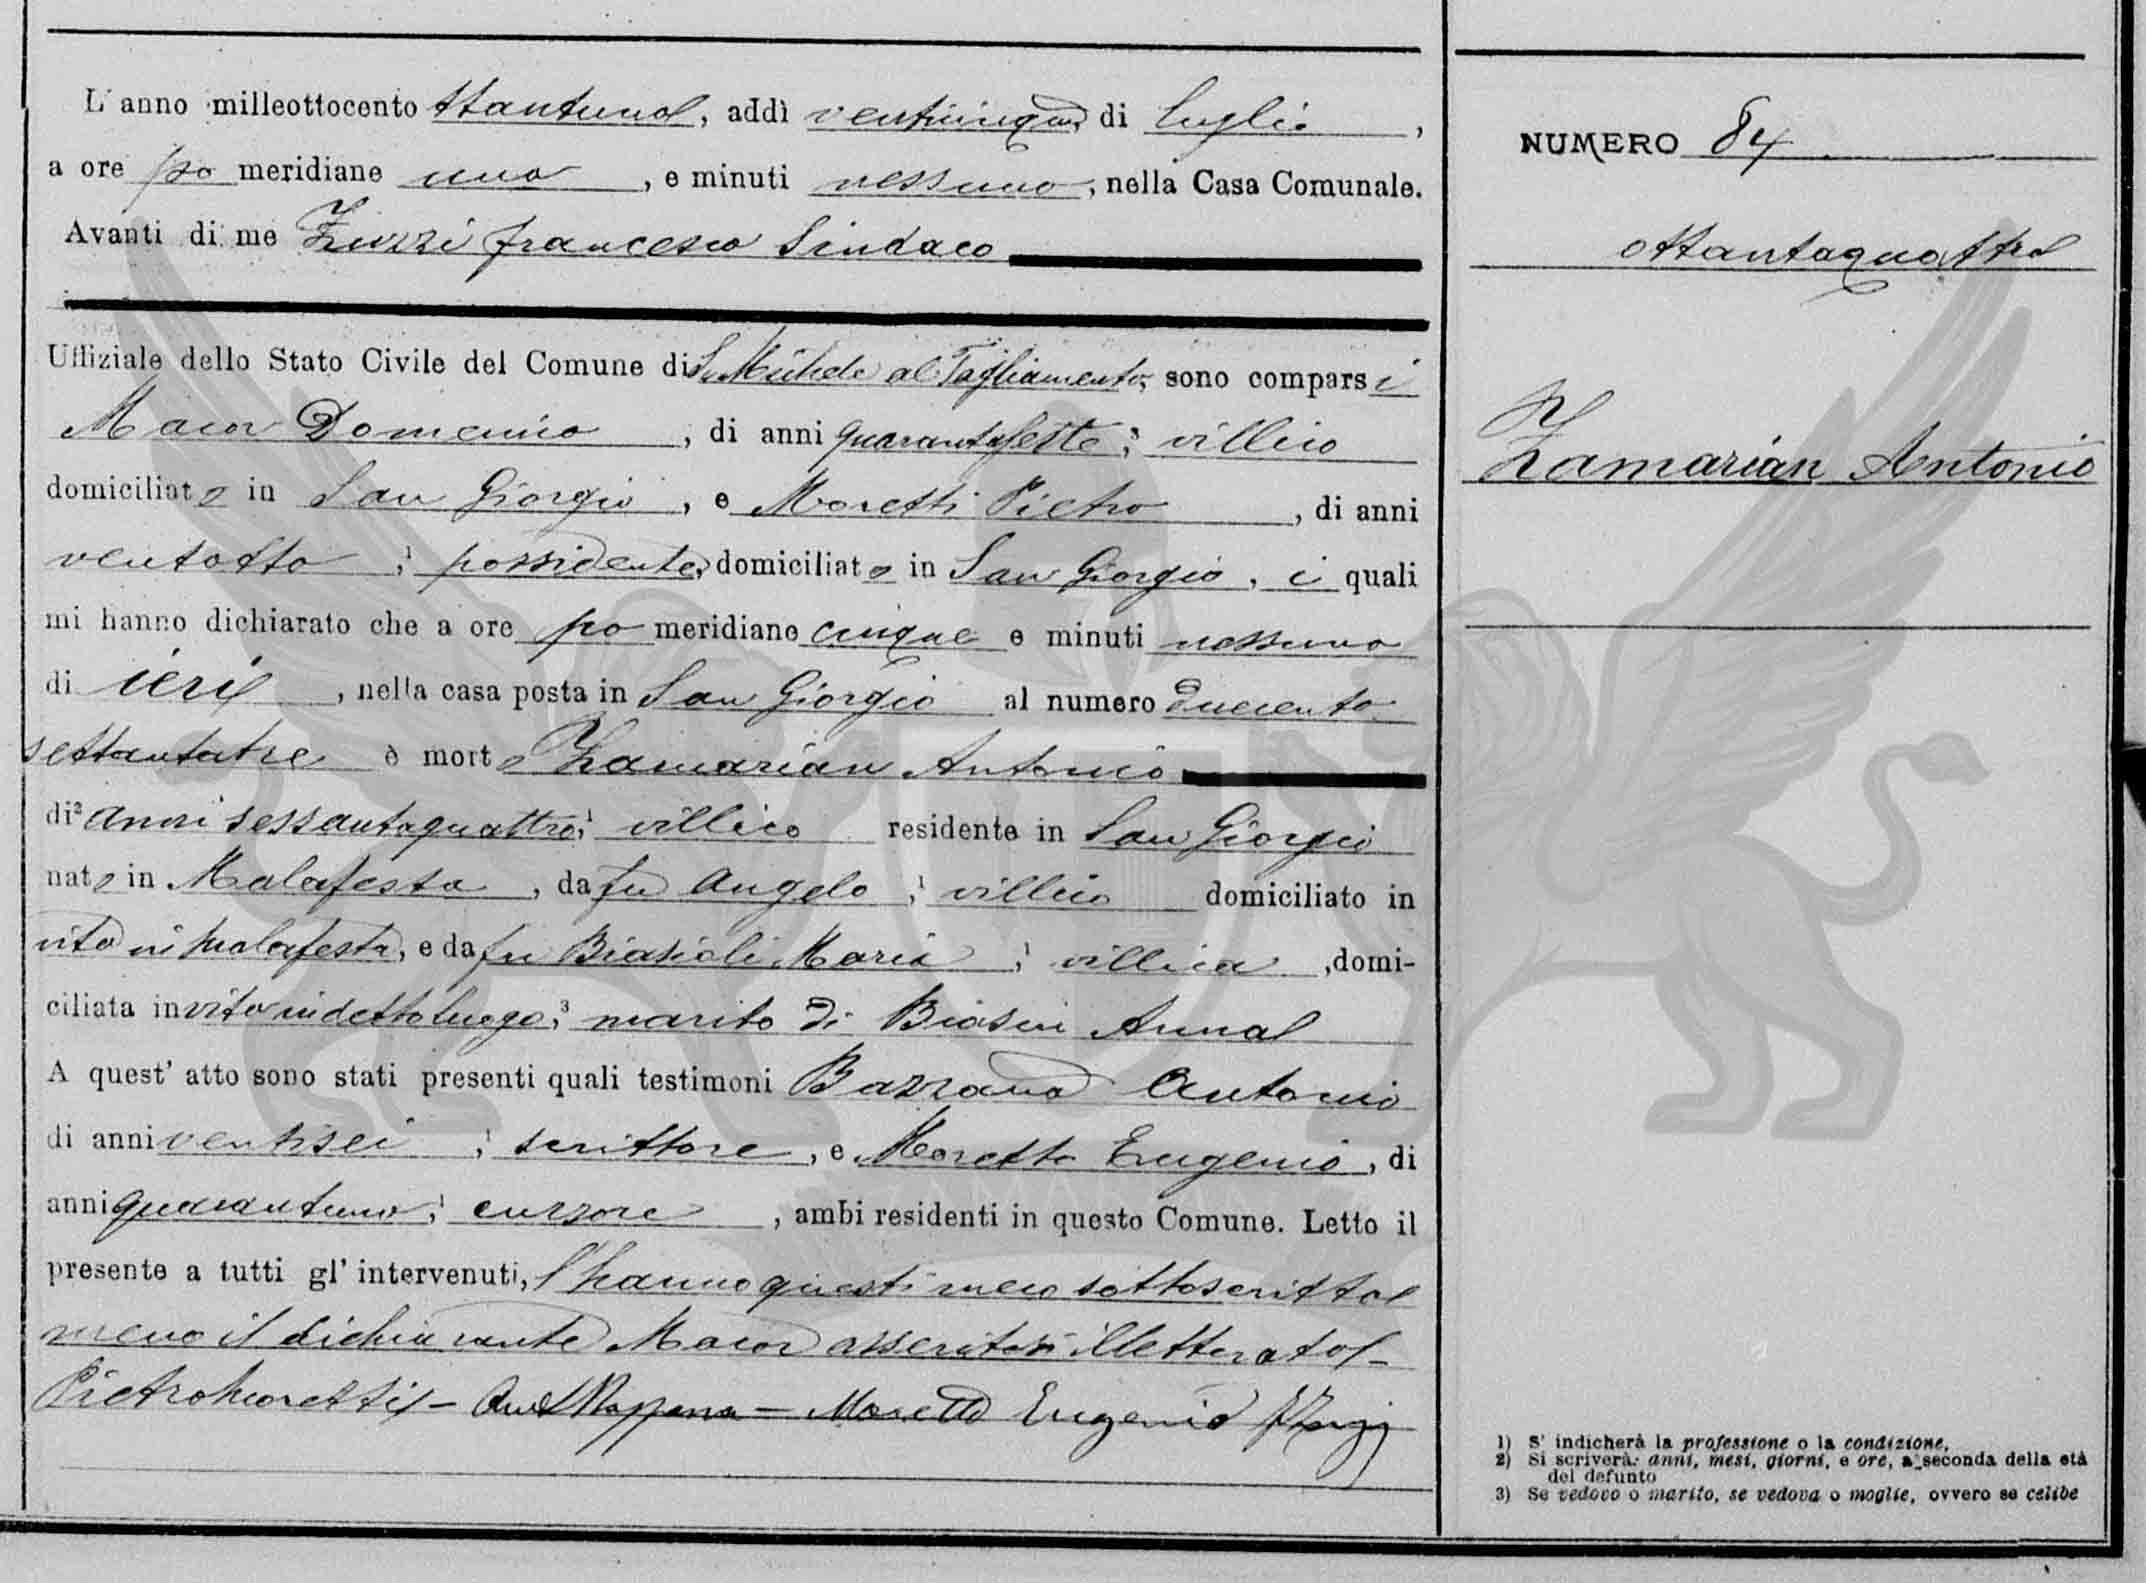 L'anno milleottocento ttantuno, addì venticinque di luglio,
a ore po meridiane una, e minuti nessuno, nella Casa Comunale.
Avanti di me Zuzzi Francesco Sindaco
Uffiziale dello Stato Civile del Comune di S. Michele al Tagliamento, sono comparsi
Macor Domenico, di anni quarantasette, villico
domiciliato in San Giorgio, e Moretti Pietro, di anni
ventotto, ¹ possidente, domiciliato in San Giorgio, i quali
mi hanno dichiarato che a ore po meridiane cinque e minuti nessuno
di ieri, nella casa posta in San Giorgio al numero duecento
settantatre è morto Zamarian Antonio
di² anni sessantaquattro, ¹ villico residente in San Giorgio
nato in Malafesta, da fu Angelo, ¹ villico domiciliato in
vita in Malafesta, e da fu Biasioli Maria, ¹ villica, domi-
ciliata in vita in detto luogo, ³ marito di Biasin Anna
A quest' atto sono stati presenti quali testimoni Bazzana Antonio
di anni ventisei, ¹ scrittore, e Moretto Eugenio, di
anni quarantuno, ¹ cursore, ambi residenti in questo Comune. Letto il
presente a tutti gl' intervenuti, l'hanno questi meco sottoscritto
meno il dichiarante Macor asseritosi illetterato -
Pietro Moretti - Ant - Moretto Eugenio
NUMERO 84
ottantaquattro
Zamarian Antonio
1) S' indicherà la professione o la condizione.
2) Si scriverà: anni, mesi, giorni, e ore, a seconda della età
del defunto
3) Se vedovo o marito, se vedova o moglie, ovvero se celibe